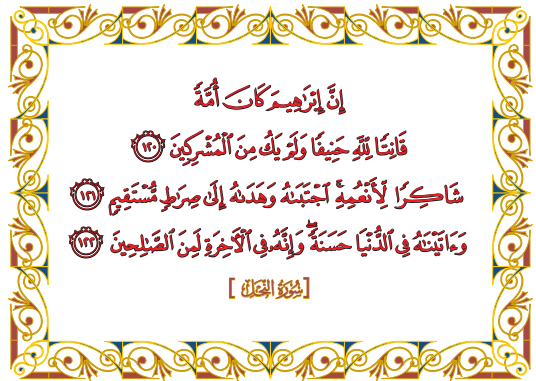 إِنَّ إِبْرَٰهِيمَ كَانَ أُمَّةً
قَانِتًا لِّلَّهِ حَنِيفًا وَلَمْ يَكُ مِنَ ٱلْمُشْرِكِينَ ١٢٠
شَاكِرًا لِّأَنْعُمِهِ ۚ ٱجْتَبَىٰهُ وَهَدَىٰهُ إِلَىٰ صِرَٰطٍ مُّسْتَقِيمٍ ١٢١
وَءَاتَيْنَٰهُ فِى ٱلدُّنْيَا حَسَنَةً ۖ وَإِنَّهُۥ فِى ٱلْـَٔاخِرَةِ لَمِنَ ٱلصَّٰلِحِينَ ١٢٢
[سُورَةُ النَّحْلِ]